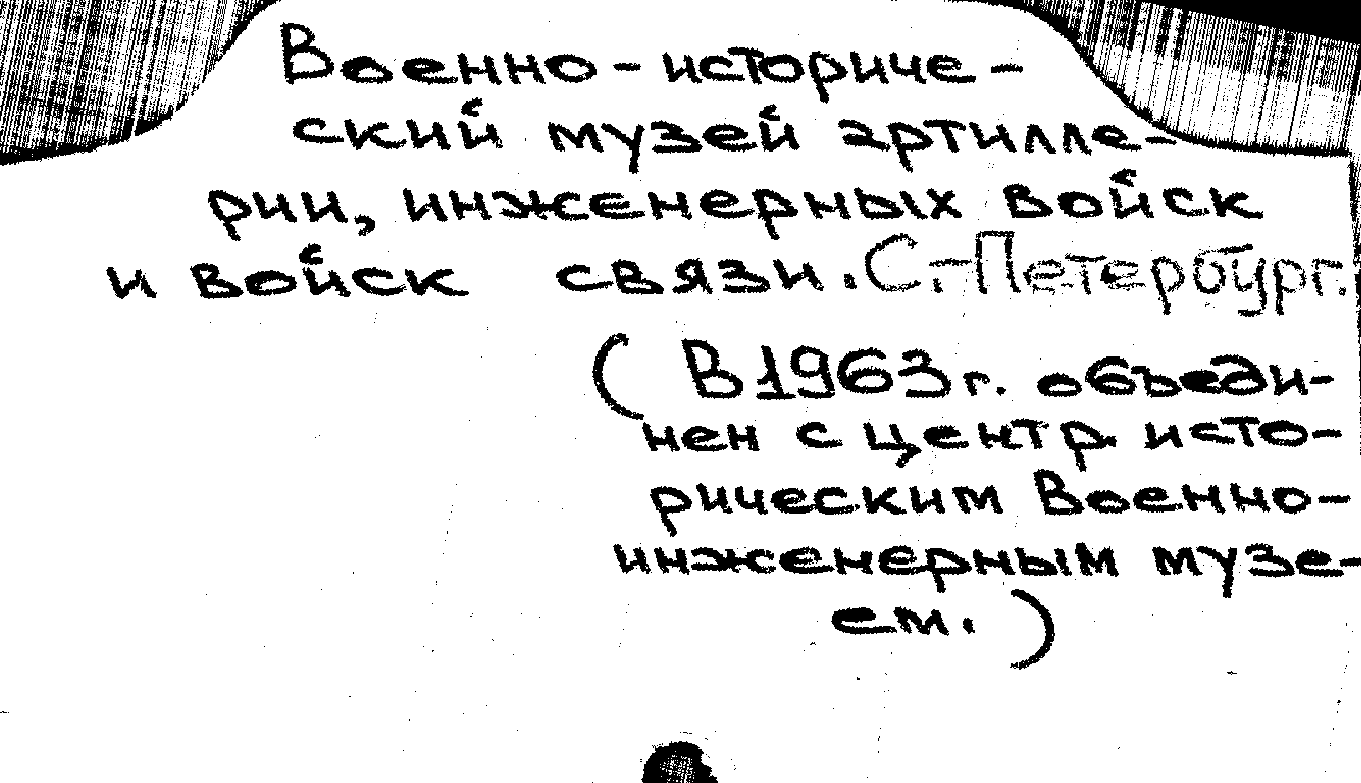 Военно-историче-
ский музей артилле-
рии, инженерных войск
и войск связи. С.-Петербург.
(В 1963 г. объеди-
нен с центр. исто-
рическим Военно-
инженерным музе-
ем.)